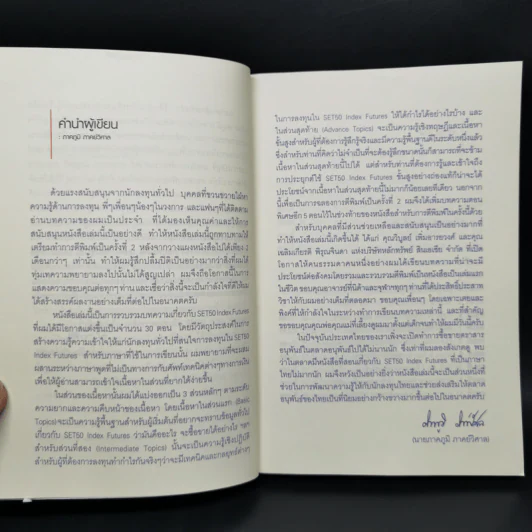 คำนำผู้เขียน
: ภาคภูมิ ภาคย์วิศาล
ด้วยแรงสนับสนุนจากนักลงทุนทั่วไป บุคคลที่ชวนขวายใฝ่หา
ความรู้ด้านการลงทุน พี่ๆเพื่อนๆน้องๆในวงการ และแฟนๆที่ได้ติดตาม
อ่านบทความของผมเป็นประจำ ที่ได้มองเห็นคุณค่าและให้การ
สนับสนุนหนังสือเล่มนี้เป็นอย่างดี ทำให้หนังสือเล่มนี้ถูกทาบทามให้
เตรียมทำการตีพิมพ์เป็นครั้งที่ 2 หลังจากวางแผงหนังสือไปได้เพียง 2
เดือนกว่าๆ เท่านั้น ทำให้ผมรู้สึกปลื้มปิติเป็นอย่างมากว่าสิ่งที่ผมได้
ทุ่มเทความพยายามลงไปนั้นไม่ได้สูญเปล่า ผมจึงถือโอกาสนี้ในการ
แสดงความขอบคุณต่อทุกๆท่าน และเชื่อว่าสิ่งนี้จะเป็นกำลังใจที่ดีให้ผม
ได้สร้างสรรค์ผลงานอย่างเต็มที่ต่อไปในอนาคตครับ
หนังสือเล่มนี้เป็นการรวบรวมบทความเกี่ยวกับ SET50 Index Futures
ที่ผมได้มีโอกาสแต่งขึ้นเป็นจำนวน 30 ตอน โดยมีวัตถุประสงค์ในการ
สร้างความรู้ความเข้าใจให้แก่นักลงทุนทั่วไปที่สนใจการลงทุนใน SET50
Index Futures สำหรับภาษาที่ใช้ในการเขียนนั้น ผมพยายามที่จะผสม
ผสานระหว่างภาษาพูดที่ไม่เป็นทางการกับศัพท์เทคนิคต่างๆทางการเงิน
เพื่อให้ผู้อ่านสามารถเข้าใจเนื้อหาในส่วนที่ยากได้ง่ายขึ้น
ในส่วนของเนื้อหานั้นผมได้แบ่งออกเป็น 3 ส่วนหลักๆ ตามระดับ
ความยากและความลึกของเนื้อหา โดยเนื้อหาในส่วนแรก (Basic
Topics)จะเป็นความรู้พื้นฐานสำหรับผู้เริ่มต้นที่อยากจะทราบข้อมูลทั่วไป
เกี่ยวกับ SET50 Index Futures ว่ามันคืออะไร จะซื้อขายได้อย่างไร ฯลฯ
สำหรับส่วนที่สอง (Intermediate Topics) นั้นจะเป็นความรู้เชิงปฏิบัติ
สำหรับผู้ที่ต้องการลงทุนทำกำไรกันจริงๆว่าจะมีเทคนิคและกลยุทธ์ต่างๆ
ในการลงทุนใน SET50 Index Futures ให้ได้กำไรได้อย่างไรบ้าง และ
ในส่วนสุดท้าย (Advance Topics) จะเป็นความรู้เชิงทฤษฎีและเนื้อหา
ขั้นสูงสำหรับผู้ที่ต้องการรู้ลึกรู้จริงและมีความรู้พื้นฐานดีในระดับหนึ่งแล้ว
ซึ่งสำหรับท่านที่คิดว่าไม่จำเป็นที่จะต้องรู้ลึกขนาดนั้นก็สามารถที่จะข้าม
เนื้อหาในส่วนสุดท้ายนี้ไปได้ แต่สำหรับท่านที่ต้องการรู้และเข้าใจถึง
การประยุกต์ใช้ SET50 Index Futures ขั้นสูงอย่างถ่องแท้ก็น่าจะได้
ประโยชน์จากเนื้อหาในส่วนสุดท้ายนี้ไม่มากก็น้อยเลยทีเดียว นอกจาก
นี้เพื่อเป็นการฉลองการตีพิมพ์เป็นครั้งที่ 2 ผมจึงได้เพิ่มบทความตอน
พิเศษอีก 5 ตอนไว้ในช่วงท้ายของหนังสือสำหรับการตีพิมพ์ในครั้งนี้ด้วย
สำหรับบุคคลที่มีส่วนช่วยเหลือและสนับสนุนเป็นอย่างมากที่
ทำให้หนังสือเล่มนี้เกิดขึ้นได้ ได้แก่ คุณวิบูลย์ เพิ่มอารยวงศ์ และคุณ
เฉลิมเกียรติ พิรุณจินดา แห่งบริษัทหลักทรัพย์ สินเอเซีย จำกัด ที่เปิด
โอกาสให้คนธรรมดาคนหนึ่งอย่างผมได้เขียนบทความที่น่าจะมี
ประโยชน์ต่อสังคมโดยรวมและรวบรวมตีพิมพ์เป็นหนังสือเป็นเล่มแรก
ในชีวิต ขอบคุณอาจารย์ที่นิด้าและจุฬาฯทุกๆ ท่านที่ได้ประสิทธิ์ประสาท
วิชาให้กับผมอย่างเต็มที่ตลอดมา ขอบคุณเพื่อนๆ โดยเฉพาะเตยและ
พิงค์ที่ให้กำลังใจในระหว่างทำการเขียนบทความเหล่านี้ และที่สำคัญ
ขอขอบคุณคุณพ่อคุณแม่ที่เลี้ยงดูผมมาตั้งแต่เด็กจนทำให้ผมมีวันนี้ครับ
ในปัจจุบันประเทศไทยของเราเพิ่งจะเปิดทำการซื้อขายตราสาร
อนุพันธ์ในตลาดอนุพันธ์ไปได้ไม่นานนัก ซึ่งเท่าที่ผมลองสังเกตดู พบ
ว่าในตลาดมีหนังสือที่สอนเกี่ยวกับ SET50 Index Futures ที่เป็นภาษา
ไทยไม่มากนัก ผมจึงหวังเป็นอย่างยิ่งว่าหนังสือเล่มนี้จะเป็นส่วนหนึ่งที่
ช่วยในการพัฒนาความรู้ให้กับนักลงทุนไทยและช่วยส่งเสริมให้ตลาด
อนุพันธ์ของไทยเป็นที่นิยมอย่างกว้างขวางมากขึ้นต่อไปในอนาคตครับ
นายภาคภูมิ ภาคย์วิศาล